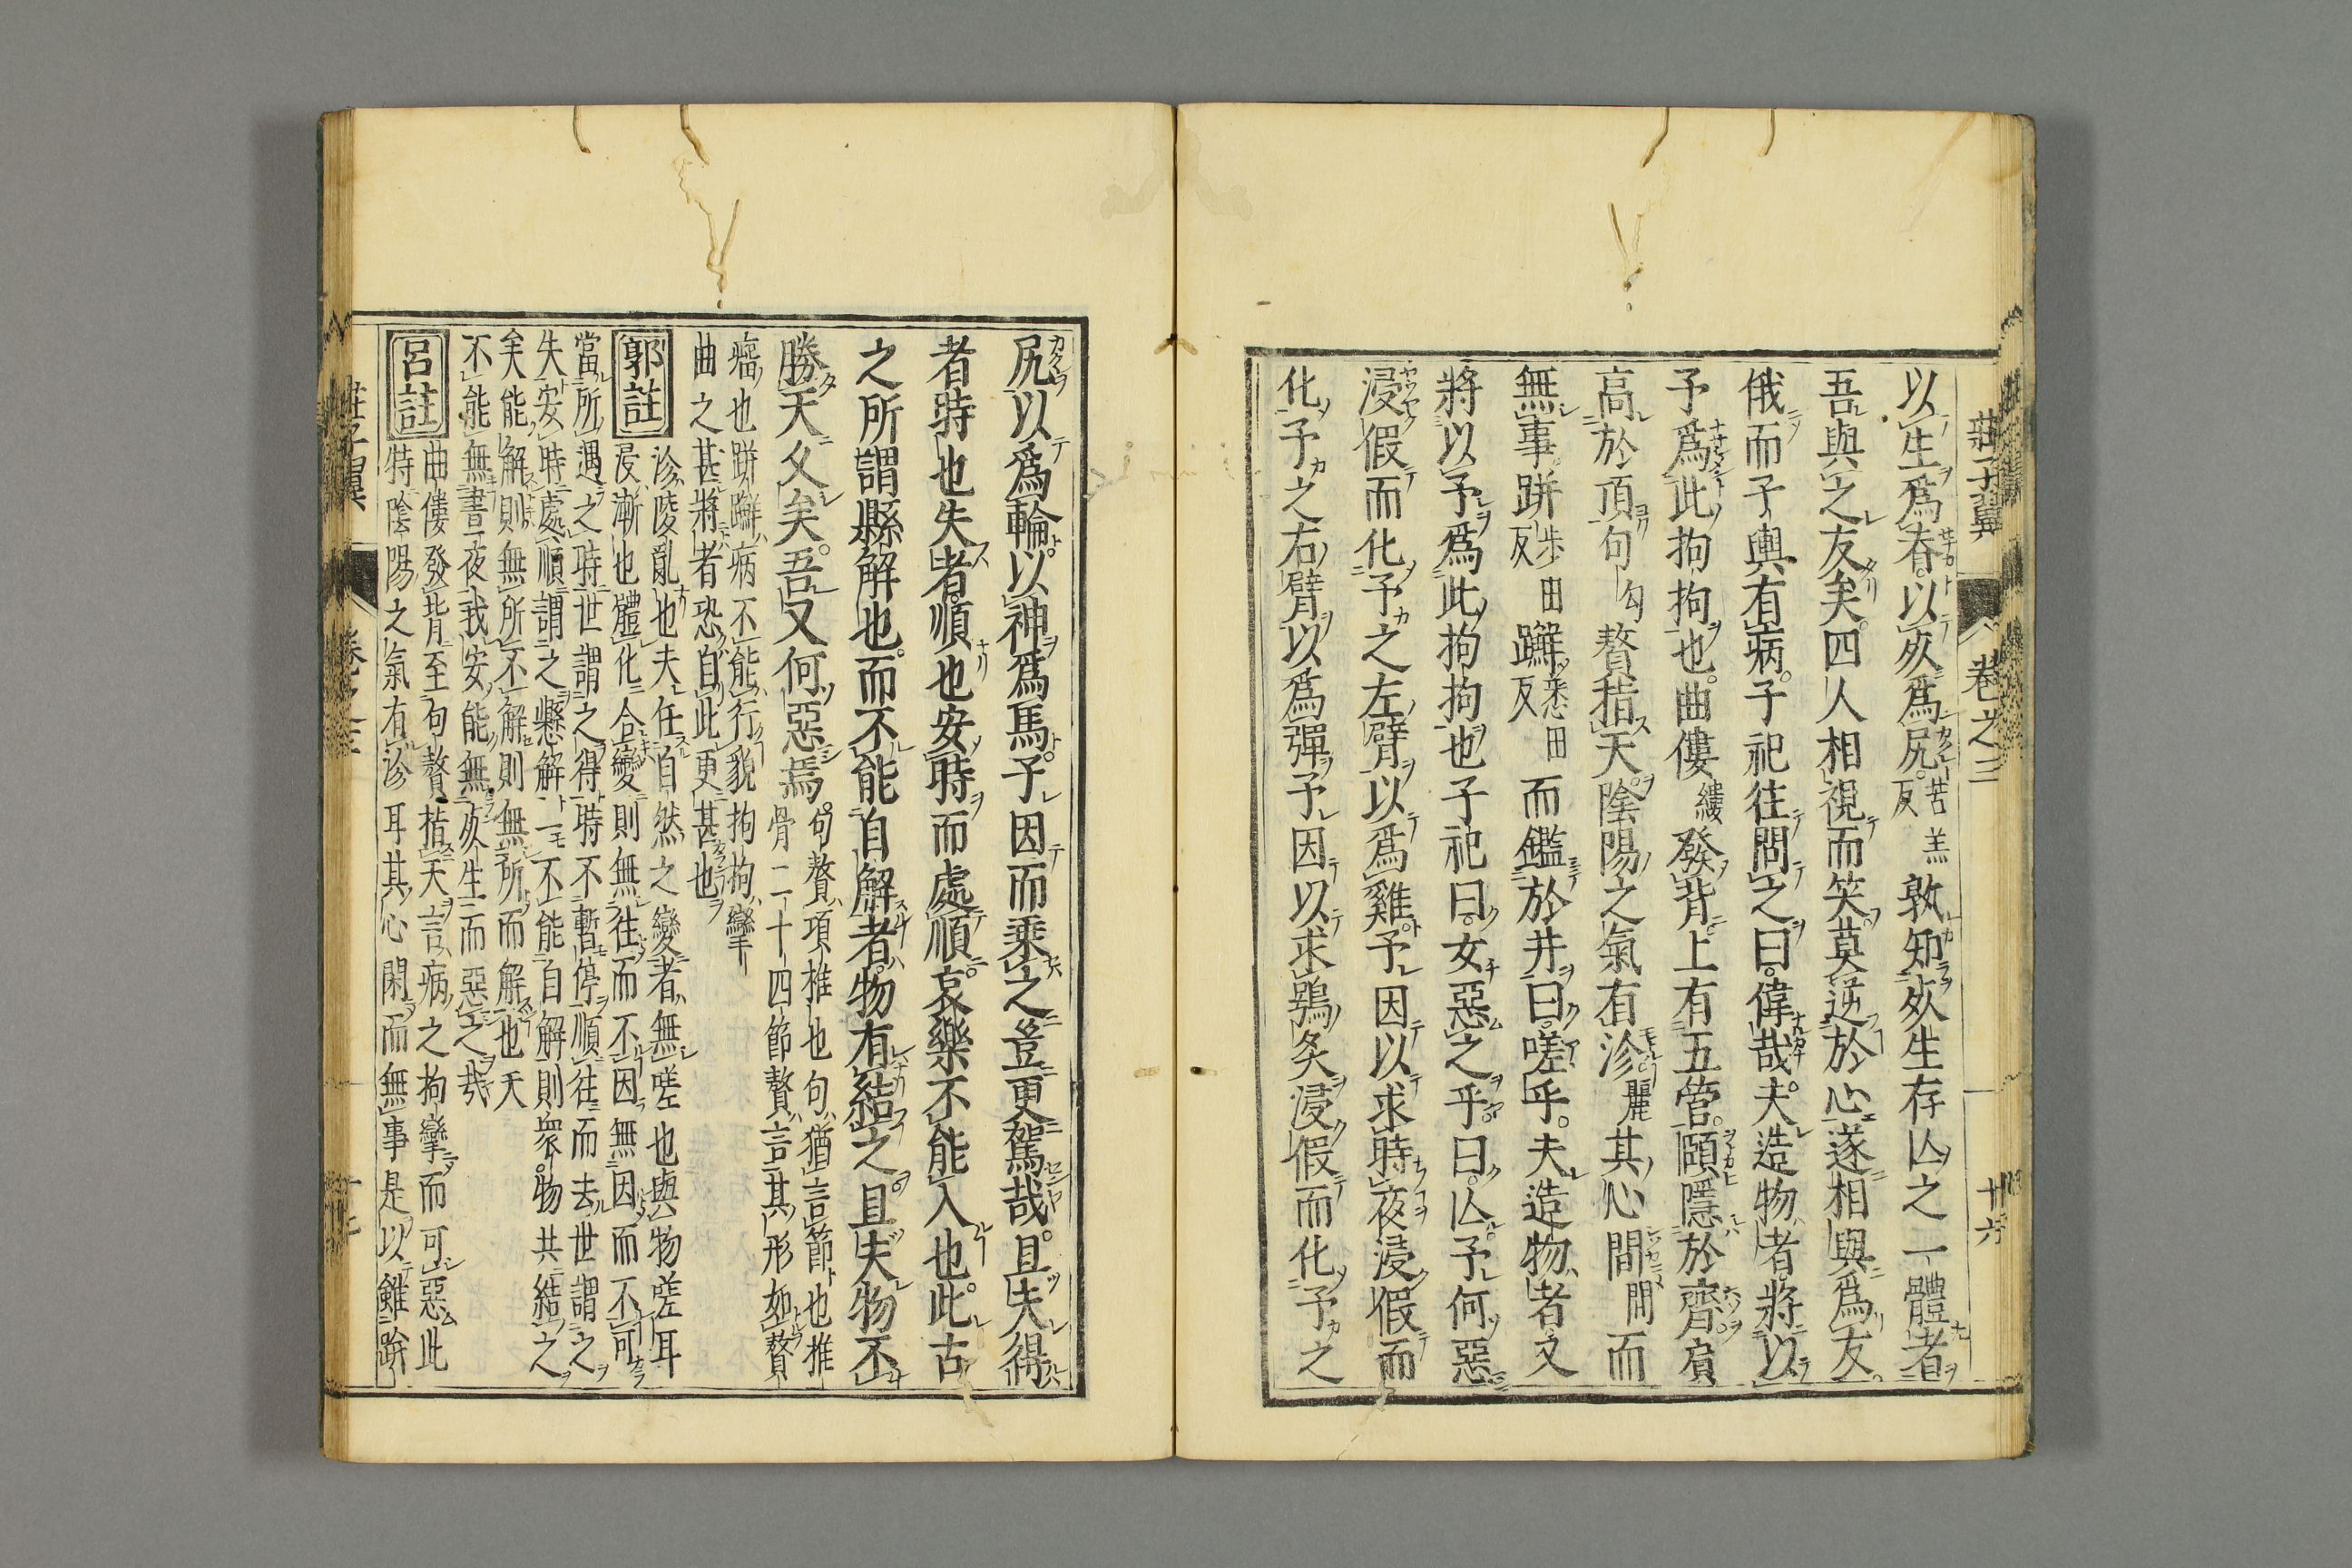 莊子翼 卷之三 廿六
以生爲脊以死爲尻苦羔反孰知死生存亡之一體者
吾與之友矣四人相視而笑莫逆於心遂相與爲友
俄而子輿有病子祀往問之曰偉哉夫造物者將以
予爲此拘拘也曲僂縷發背上有五管頤隱於齊肩
高於頂句勾贅指天陰陽之氣有沴麗其心間閒而
無事跰步田反𨇤悉田反而鑑於井曰嗟乎夫造物者又
將以予爲此拘拘也子祀曰女惡之乎曰亡予何惡
浸假而化予之左臂以爲雞予因以求時夜浸假而
化予之右臂以爲彈予因以求鴞炙浸假而化予之
尻以爲輪以神爲馬予因而乘之豈更駕哉且夫得
者時也失者順也安時而處順哀樂不能入也此古
之所謂縣解也而不能自解者物有結之且夫物不
勝天久矣吾又何惡焉句贅項椎也句猶言節也椎
骨二十四節贅言其形如贅
瘤也跰𨇤病不能行貌拘拘攣
曲之甚將者恐自此更甚也
郭註 沴陵亂也夫任自然之變者無嗟也與物嗟耳
浸漸也體化合變則無往而不因無因而不可
當所遇之時世謂之得時不暫停順往而去世謂之
失安時處順謂之懸解一不能自解則衆物共結之
矣能解則無所不解則無所而解也天
不能無晝夜我安能無死生而惡之哉
呂註 曲僂發背至句贅指天言病之拘攣而可惡此
特陰陽之氣有沴耳其心閑而無事是以雖跰